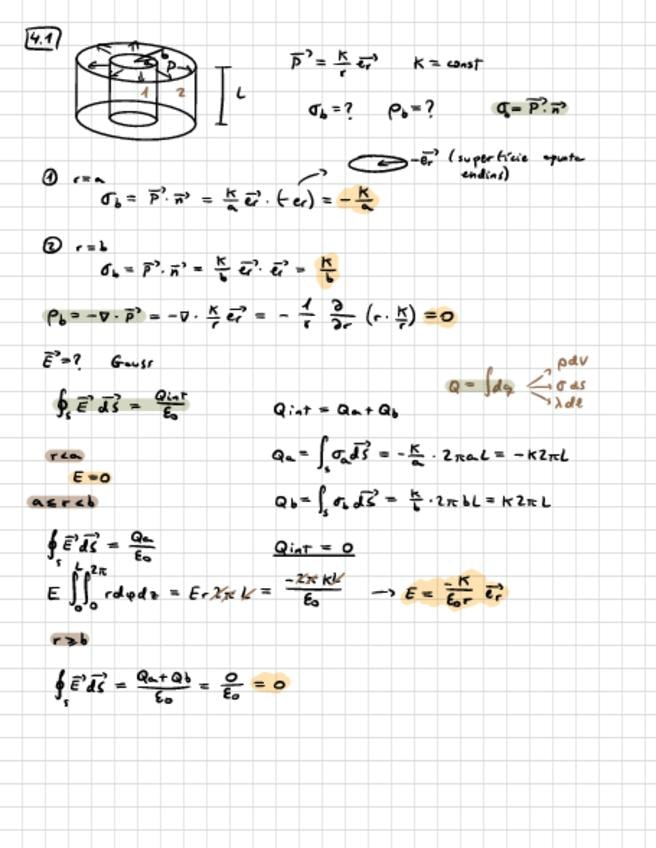 4.1
b
P
1 2 L
P⃗ = K/r e⃗r K = const
σb = ? ρb = ? σ = P⃗ · n⃗
-e⃗r (superfície apunta
endins)
① r=a
σb = P⃗ · n⃗ = K/a e⃗r · (-er) = -K/a
② r=b
σb = P⃗ · n⃗ = K/b e⃗r · e⃗r = K/b
ρb = -∇ · P⃗ = -∇ · K/r e⃗r = - 1/r ∂/∂r (r · K/r) = 0
E⃗ = ? Gauss
∮s E⃗ dS⃗ = Qint/ε0
Q = ∫dq
ρdV
σds
λdl
Qint = Qa + Qb
r<a
Qa = ∫s σa dS⃗ = -K/a · 2πaL = -K2πL
E=0
a≤r<b
Qb = ∫s σb dS⃗ = K/b · 2πbL = K2πL
∮s E⃗ dS⃗ = Qa/ε0
Qint = 0
E ∫0^L ∫0^2π r dφ dz = Er2πL = -2πKL/ε0 → E = -K/ε0r e⃗r
r≥b
∮s E⃗ dS⃗ = Qa+Qb/ε0 = 0/ε0 = 0